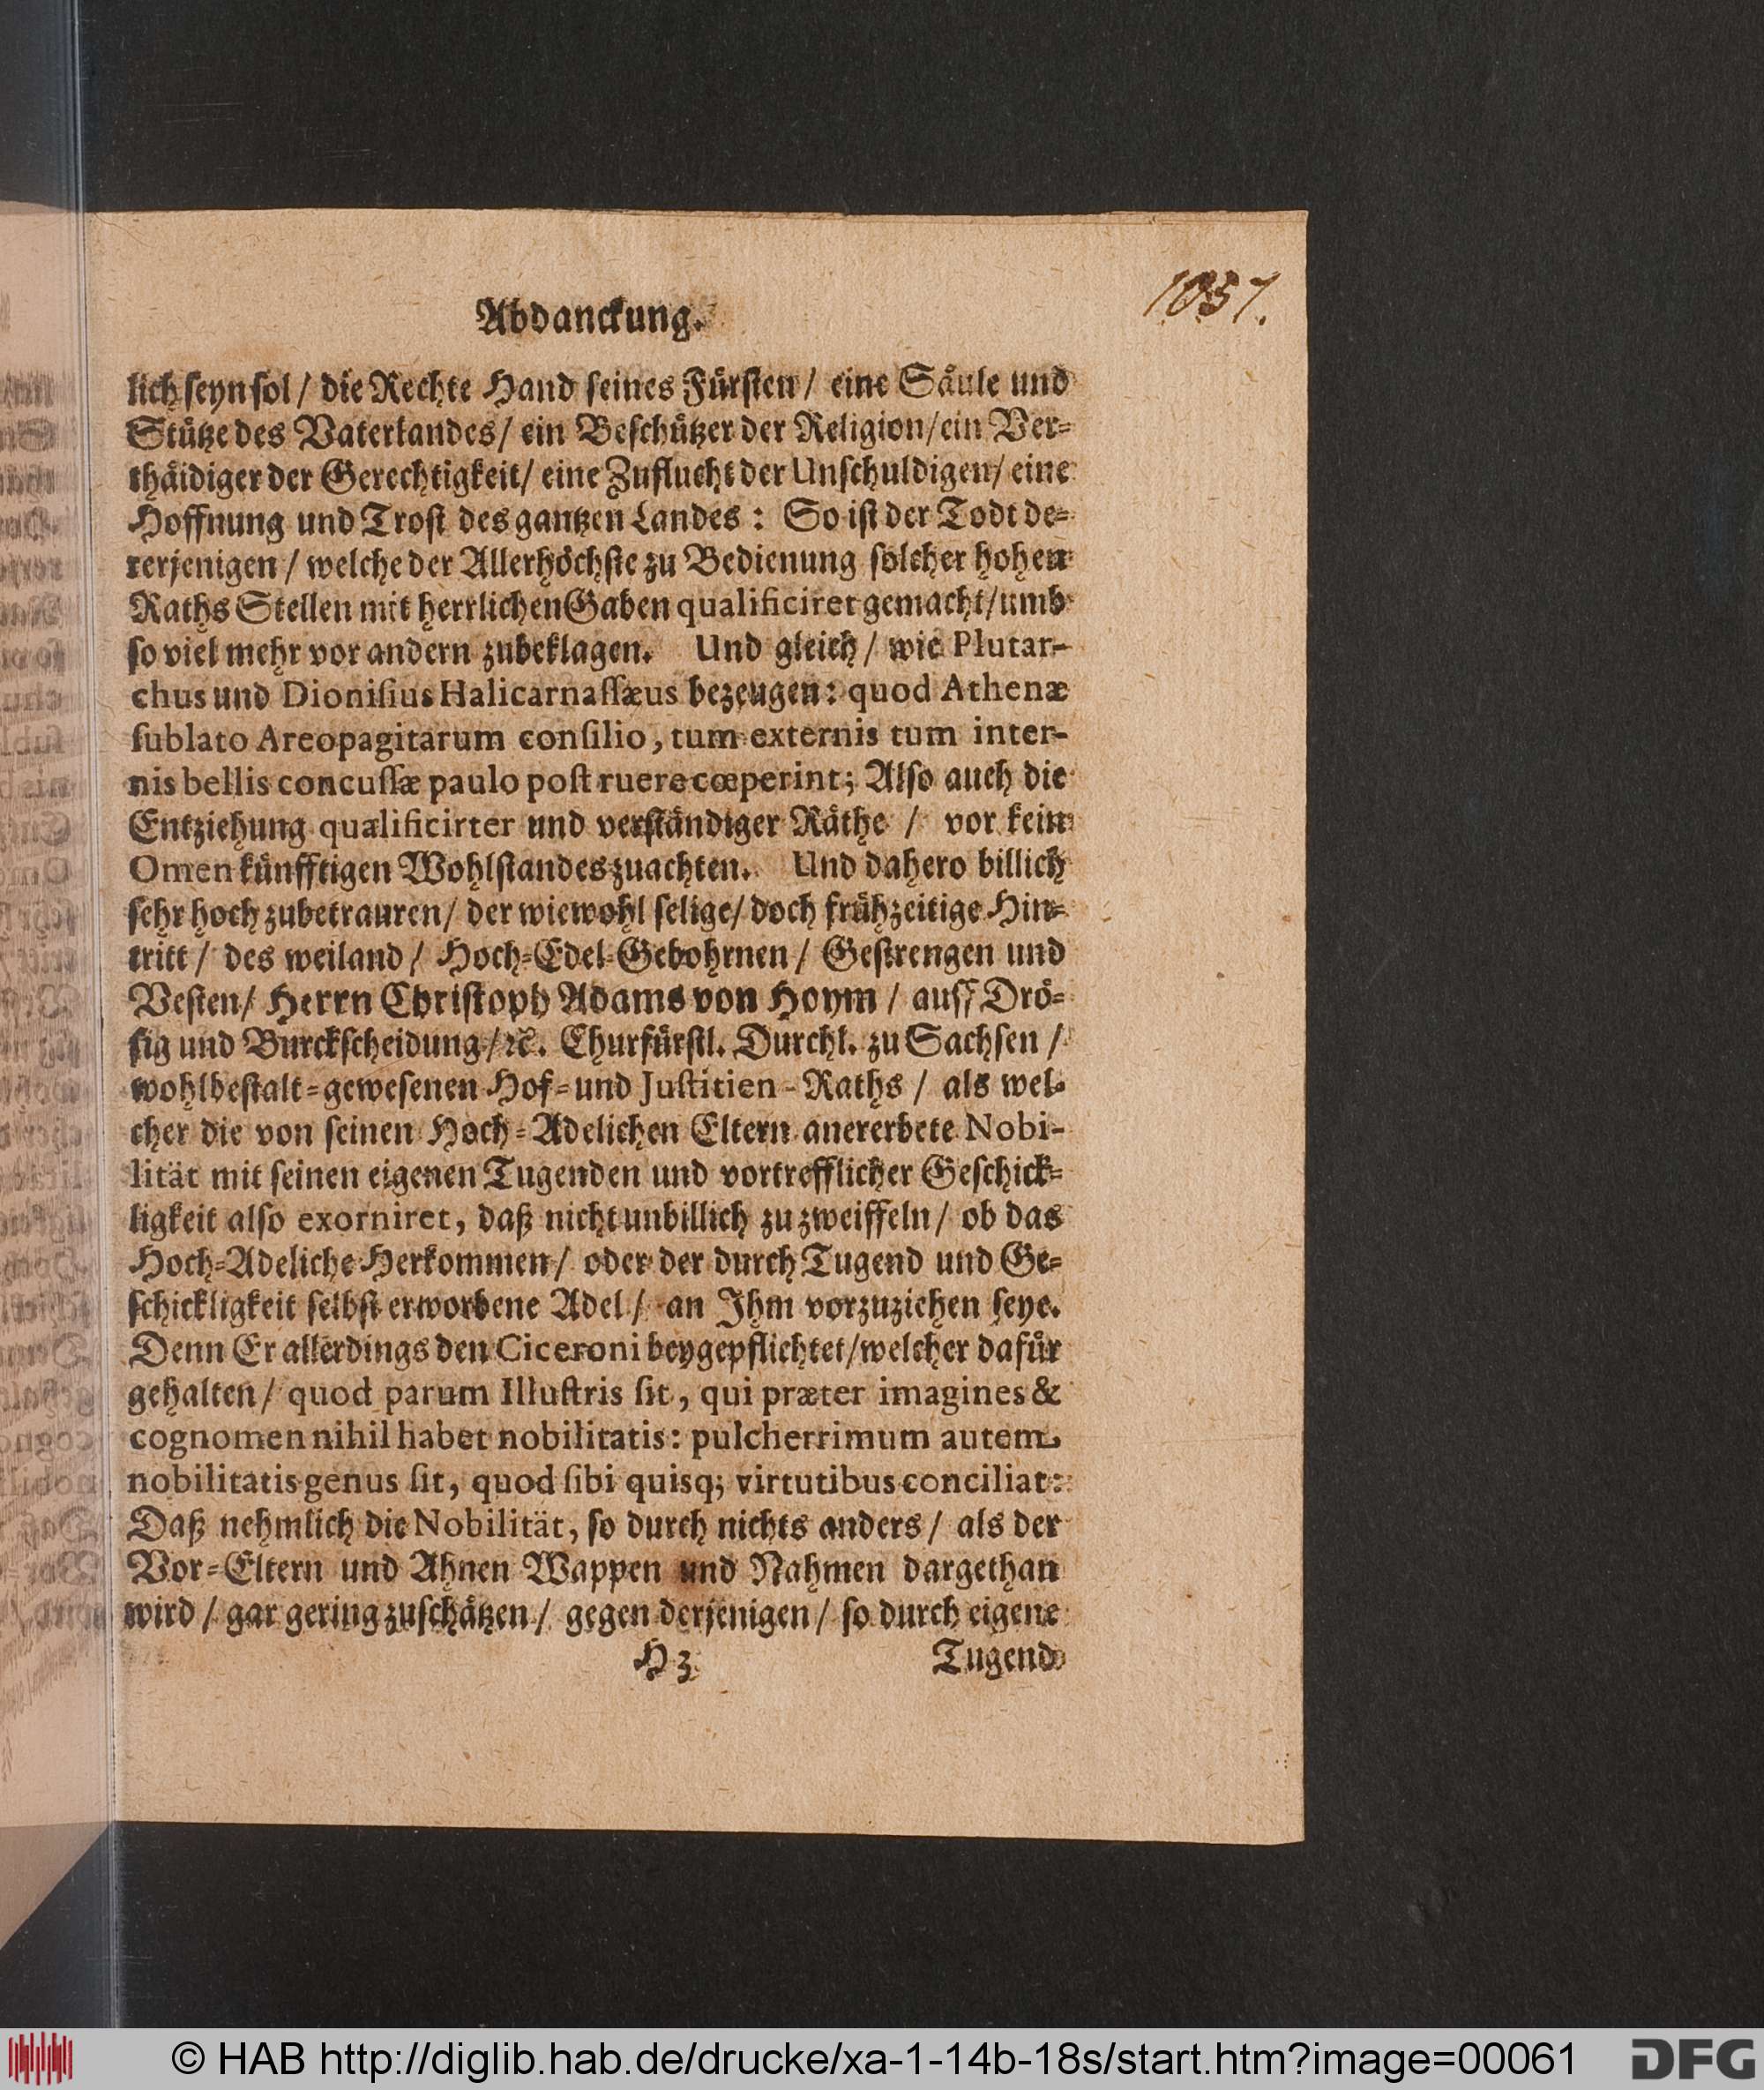 1057.
Abdanckung.
lich ſeyn ſol / die Rechte Hand ſeines Fuͤrſten / eine Saͤule und
Stuͤtze des Vaterlandes / ein Beſchuͤtzer der Religion / ein Ver⸗
thaͤidiger der Gerechtigkeit / eine Zuflucht der Unſchuldigen / eine
Hoffnung und Troſt des gantzen Landes : So iſt der Todt de⸗
rerjenigen / welche der Allerhoͤchſte zu Bedienung ſolcher hohen
Raths Stellen mit herrlichen Gaben qualificiret gemacht / umb
ſo viel mehr vor andern zubeklagen. Und gleich / wie Plutar-
chus und Dioniſius Halicarnaſſæus bezeugen : quod Athenæ
ſublato Areopagitarum conſilio, tum externis tum inter-
nis bellis concuſſæ paulo poſt ruere cœperint; Alſo auch die
Entziehung qualificirter und verſtaͤndiger Raͤthe / vor kein
Omen kuͤnfftigen Wohlſtandes zuachten. Und dahero billich
ſehr hoch zubetrauren / der wiewohl ſelige / doch fruͤhzeitige Hin⸗
tritt / des weiland / Hoch⸗Edel⸗Gebohrnen / Geſtrengen und
Veſten / Herrn Chriſtoph Adams von Hoym / auff Droͤ⸗
ſig und Burckſcheidung / ꝛc. Churfuͤrſtl. Durchl. zu Sachſen /
wohlbeſtalt⸗geweſenen Hof⸗und Juſtitien-Raths / als wel⸗
cher die von ſeinen Hoch⸗Adelichen Eltern anererbete Nobi-
lität mit ſeinen eigenen Tugenden und vortrefflicher Geſchick⸗
ligkeit alſo exorniret, daß nicht unbillich zu zweiffeln / ob das
Hoch⸗Adeliche Herkommen / oder der durch Tugend und Ge⸗
ſchickligkeit ſelbſt erworbene Adel / an Ihm vorzuziehen ſeye.
Denn Er allerdings den Ciceroni beygepflichtet / welcher dafuͤr
gehalten / quod parum Illuſtris ſit, qui præter imagines &
cognomen nihil habet nobilitatis : pulcherrimum autem
nobilitatis genus ſit, quod ſibi quisq; virtutibus conciliat :
Daß nehmlich die Nobilität, ſo durch nichts anders / als der
Vor⸗Eltern und Ahnen Wappen und Nahmen dargethan
wird / gar gering zuſchaͤtzen / gegen derjenigen / ſo durch eigene
H 3 Tugend
© HAB http://diglib.hab.de/drucke/xa-1-14b-18s/start.htm?image=00061 DFG